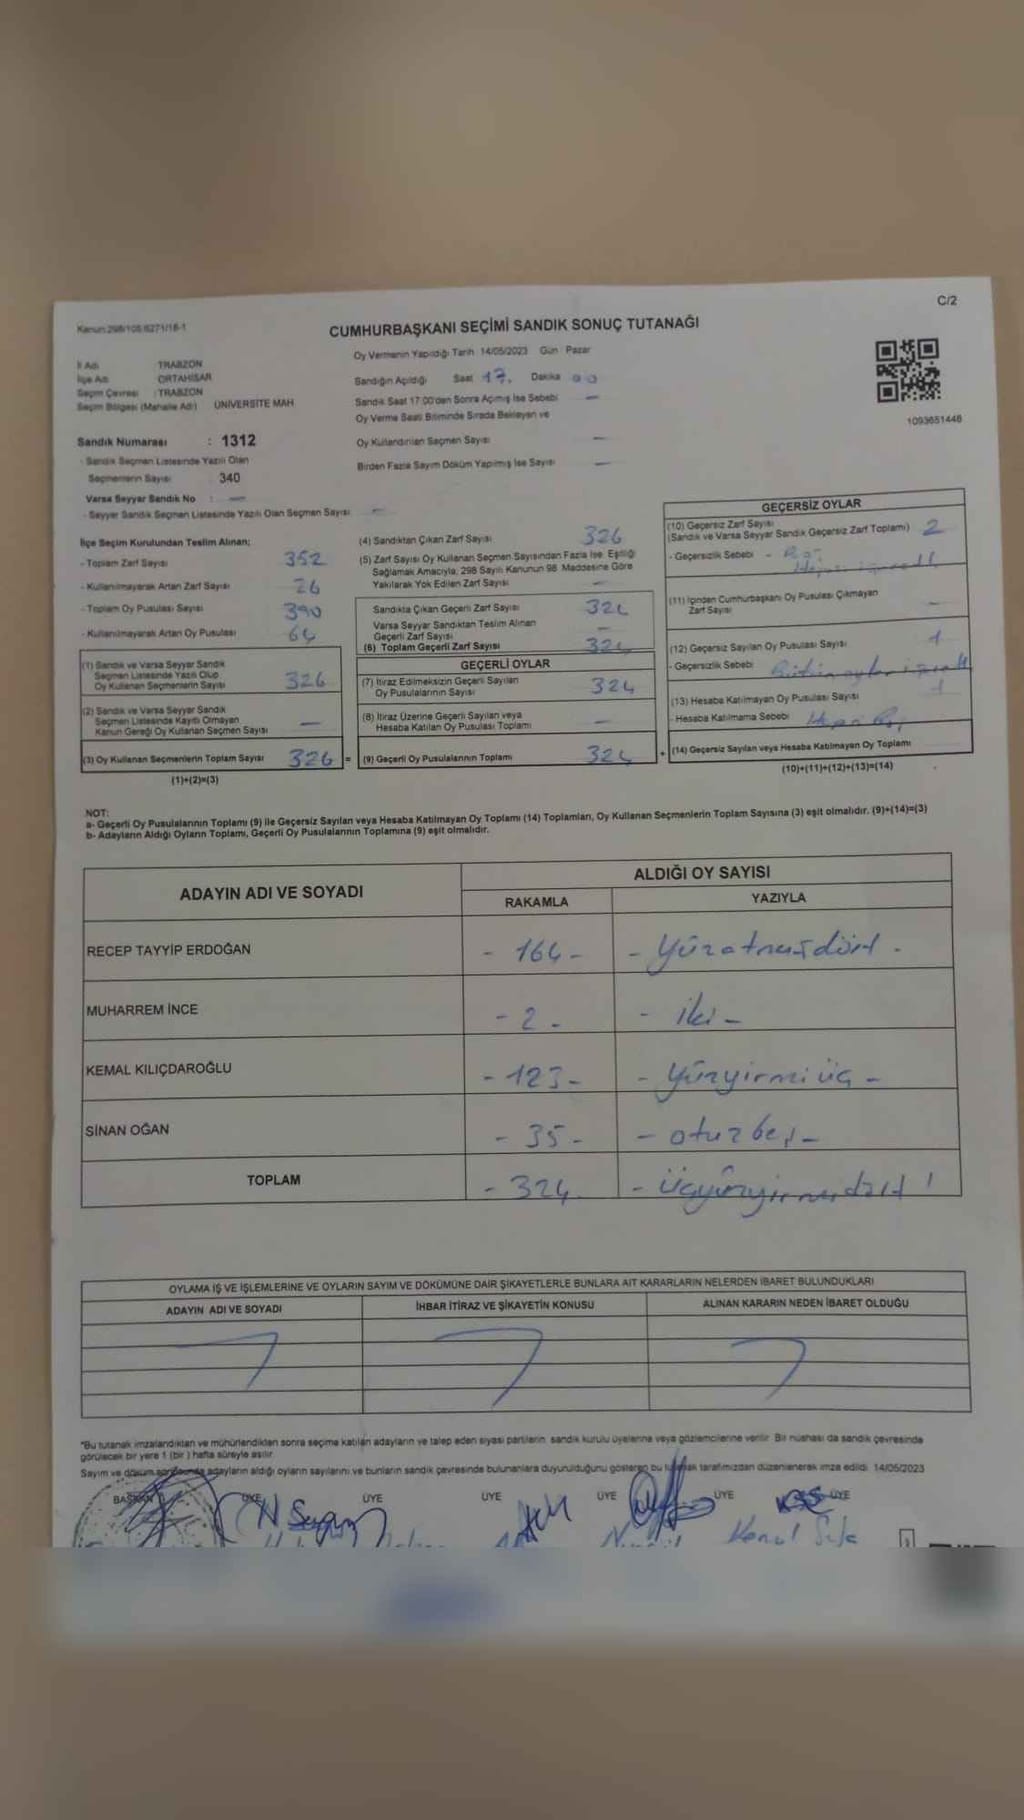 C/2
Kanun:298/105,6271/18-1
CUMHURBAŞKANI SEÇİMİ SANDIK SONUÇ TUTANAĞI
İl Adı : TRABZON
İlçe Adı : ORTAHİSAR
Seçim Çevresi : TRABZON
Seçim Bölgesi (Mahalle Adı) : ÜNİVERSİTE MAH
Sandık Numarası : 1312
- Sandık Seçmen Listesinde Yazılı Olan
Seçmenlerin Sayısı 340
Varsa Seyyar Sandık No : —
- Seyyar Sandık Seçmen Listesinde Yazılı Olan Seçmen Sayısı —
Oy Vermenin Yapıldığı Tarih 14/05/2023 Gün Pazar
Sandığın Açıldığı Saat 17. Dakika 00
Sandık Saat 17:00'den Sonra Açılmış İse Sebebi —
Oy Verme Saati Bitiminde Sırada Bekleyen ve
Oy Kullandırılan Seçmen Sayısı —
Birden Fazla Sayım Döküm Yapılmış İse Sayısı —
1093651448
İlçe Seçim Kurulundan Teslim Alınan;
- Toplam Zarf Sayısı 352
- Kullanılmayarak Artan Zarf Sayısı 26
- Toplam Oy Pusulası Sayısı 390
- Kullanılmayarak Artan Oy Pusulası 64
(1) Sandık ve Varsa Seyyar Sandık
Seçmen Listesinde Yazılı Olup
Oy Kullanan Seçmenlerin Sayısı 326
(2) Sandık ve Varsa Seyyar Sandık
Seçmen Listesinde Kayıtlı Olmayan
Kanun Gereği Oy Kullanan Seçmen Sayısı —
(3) Oy Kullanan Seçmenlerin Toplam Sayısı 326 =
(1)+(2)=(3)
(4) Sandıktan Çıkan Zarf Sayısı 326
(5) Zarf Sayısı Oy Kullanan Seçmen Sayısından Fazla İse, Eşitliği
Sağlamak Amacıyla, 298 Sayılı Kanunun 98. Maddesine Göre
Yakılarak Yok Edilen Zarf Sayısı —
Sandıkta Çıkan Geçerli Zarf Sayısı 324
Varsa Seyyar Sandıktan Teslim Alınan
Geçerli Zarf Sayısı —
(6) Toplam Geçerli Zarf Sayısı 324
GEÇERLİ OYLAR
(7) İtiraz Edilmeksizin Geçerli Sayılan
Oy Pusulalarının Sayısı 324
(8) İtiraz Üzerine Geçerli Sayılan veya
Hesaba Katılan Oy Pusulası Toplamı —
(9) Geçerli Oy Pusulalarının Toplamı 324 +
GEÇERSİZ OYLAR
(10) Geçersiz Zarf Sayısı
(Sandık ve Varsa Seyyar Sandık Geçersiz Zarf Toplamı) 2
- Geçersizlik Sebebi -
(11) İçinden Cumhurbaşkanı Oy Pusulası Çıkmayan
Zarf Sayısı —
(12) Geçersiz Sayılan Oy Pusulası Sayısı 1
- Geçersizlik Sebebi Bütün oylar
(13) Hesaba Katılmayan Oy Pusulası Sayısı 1
- Hesaba Katılmama Sebebi
(14) Geçersiz Sayılan veya Hesaba Katılmayan Oy Toplamı
(10)+(11)+(12)+(13)=(14)
NOT:
a- Geçerli Oy Pusulalarının Toplamı (9) ile Geçersiz Sayılan veya Hesaba Katılmayan Oy Toplamı (14) Toplamları, Oy Kullanan Seçmenlerin Toplam Sayısına (3) eşit olmalıdır. (9)+(14)=(3)
b- Adayların Aldığı Oyların Toplamı, Geçerli Oy Pusulalarının Toplamına (9) eşit olmalıdır.
ADAYIN ADI VE SOYADI ALDIĞI OY SAYISI
RAKAMLA YAZIYLA
RECEP TAYYİP ERDOĞAN - 164 - - Yüzatmışdört -
MUHARREM İNCE - 2 - - iki -
KEMAL KILIÇDAROĞLU - 123 - - Yüzyirmiüç -
SİNAN OĞAN - 35 - - otuzbeş -
TOPLAM - 324 - - Üçyüzyirmidört !
OYLAMA İŞ VE İŞLEMLERİNE VE OYLARIN SAYIM VE DÖKÜMÜNE DAİR ŞİKAYETLERLE BUNLARA AİT KARARLARIN NELERDEN İBARET BULUNDUKLARI
ADAYIN ADI VE SOYADI İHBAR İTİRAZ VE ŞİKAYETİN KONUSU ALINAN KARARIN NEDEN İBARET OLDUĞU
*Bu tutanak imzalandıktan ve mühürlendikten sonra seçime katılan adayların ve talep eden siyasi partilerin, sandık kurulu üyelerine veya gözlemcilerine verilir. Bir nüshası da sandık çevresinde
görülecek bir yere 1 (bir) hafta süreyle asılır.
Sayım ve döküm sonucunda adayların aldığı oyların sayılarını ve bunların sandık çevresinde bulunanlara duyurulduğunu gösteren bu tutanak tarafımızdan düzenlenerek imza edildi. 14/05/2023
BAŞKAN ÜYE ÜYE ÜYE ÜYE ÜYE ÜYE